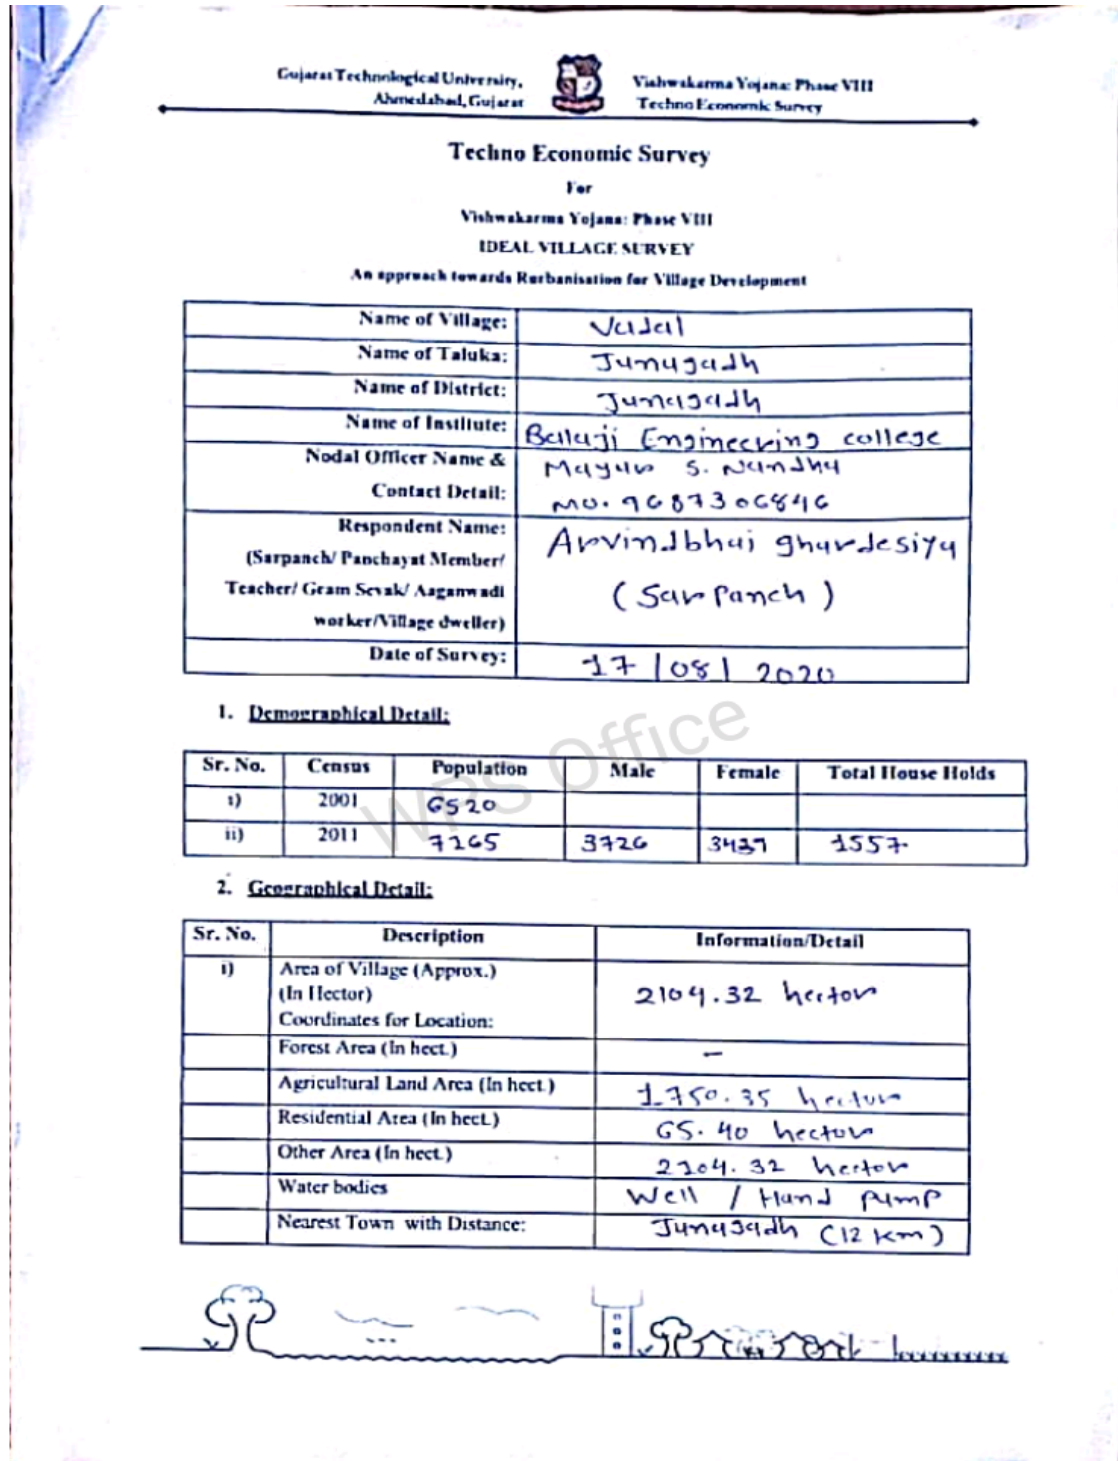 Gujarat Technological University,
Ahmedabad, Gujarat
Vishwakarma Yojana: Phase VIII
Techno Economic Survey
Techno Economic Survey
For
Vishwakarma Yojana: Phase VIII
IDEAL VILLAGE SURVEY
An approach towards Rurbanisation for Village Development
Name of Village: Vadal
Name of Taluka: Junagadh
Name of District: Junagadh
Name of Institute: Balaji Engineering college
Nodal Officer Name & Mayur S. Nandha
Contact Detail: Mo. 9687306846
Respondent Name: Arvindbhai ghardesiya
(Sarpanch/ Panchayat Member/
Teacher/ Gram Sevak/ Aaganwadi (Sarpanch)
worker/Village dweller)
Date of Survey: 17/08/2020
1. Demographical Detail:
Sr. No. Census Population Male Female Total House Holds
i) 2001 6520
ii) 2011 7265 3726 1557
2. Geographical Detail:
Sr. No. Description Information/Detail
i) Area of Village (Approx.)
(In Hector) 2104.32 hector
Coordinates for Location:
Forest Area (In hect.) -
Agricultural Land Area (In hect.) 1750.35 hector
Residential Area (In hect.) 65.40 hector
Other Area (In hect.) 2104.32 hector
Water bodies Well / Hand pump
Nearest Town with Distance: Junagadh (12 km)
WPS Office